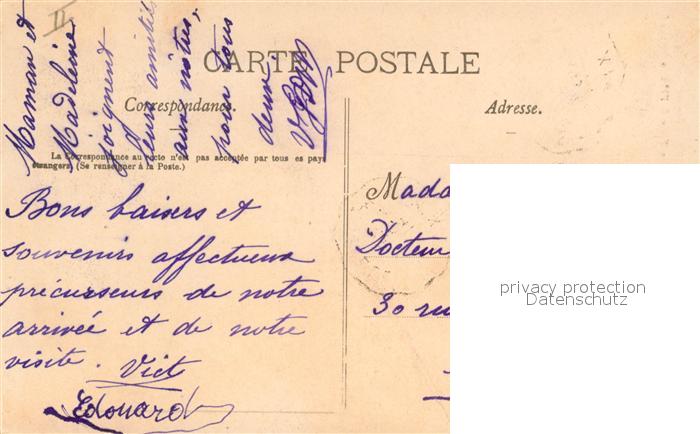 II
CARTE POSTALE
Correspondance.
Adresse.
La Correspondance au recto n'est pas acceptée par tous es pays
étrangers. (Se renseigner à la Poste.)
Maman et
Madeleine
joignent
leurs amitiés
aux nôtres,
pour tous
deux.
Bons baisers et
souvenirs affectueux
précurseurs de notre
arrivée et de notre
visite. Vict
Edouard
Mada
Docteur
30 ru
privacy protection
Datenschutz